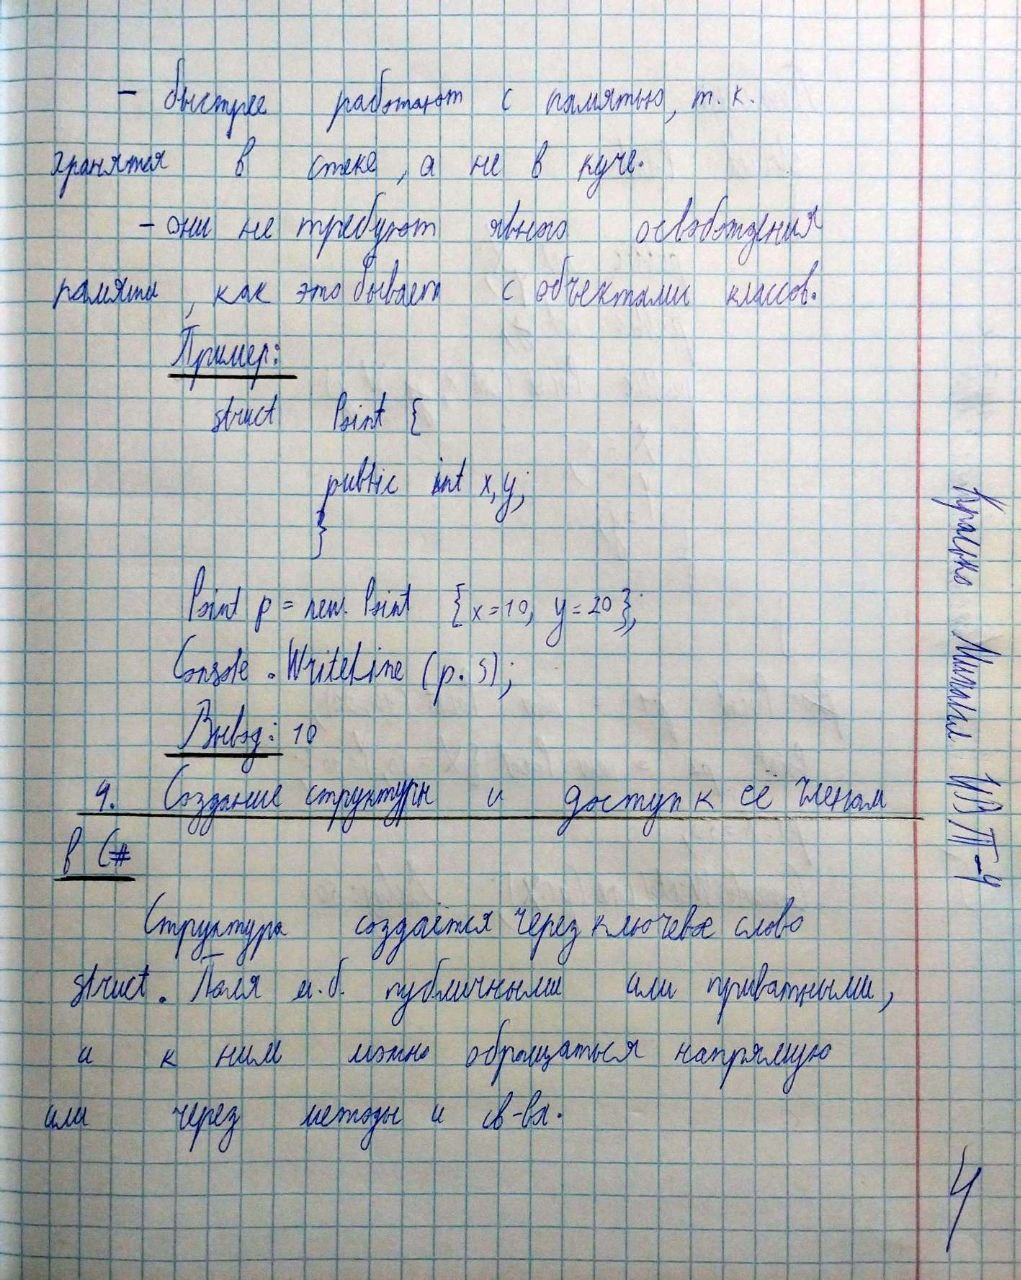 - быстрее работают с памятью, т.к.
хранятся в стеке, а не в куче.
- они не требуют явного освобождения
памяти, как это бывает с объектами классов.
Пример:
struct Point {
public int x, y;
}
Point p = new Point {x=10, y=20};
Console.WriteLine (p.5);
Вывод: 10
4. Создание структуры и доступ к её членам
в C#
Структура создаётся через ключевое слово
struct. Поля м.б. публичными или приватными,
и к ним можно обращаться напрямую
или через методы и св-ва.
Михаил ИВТ-4
4